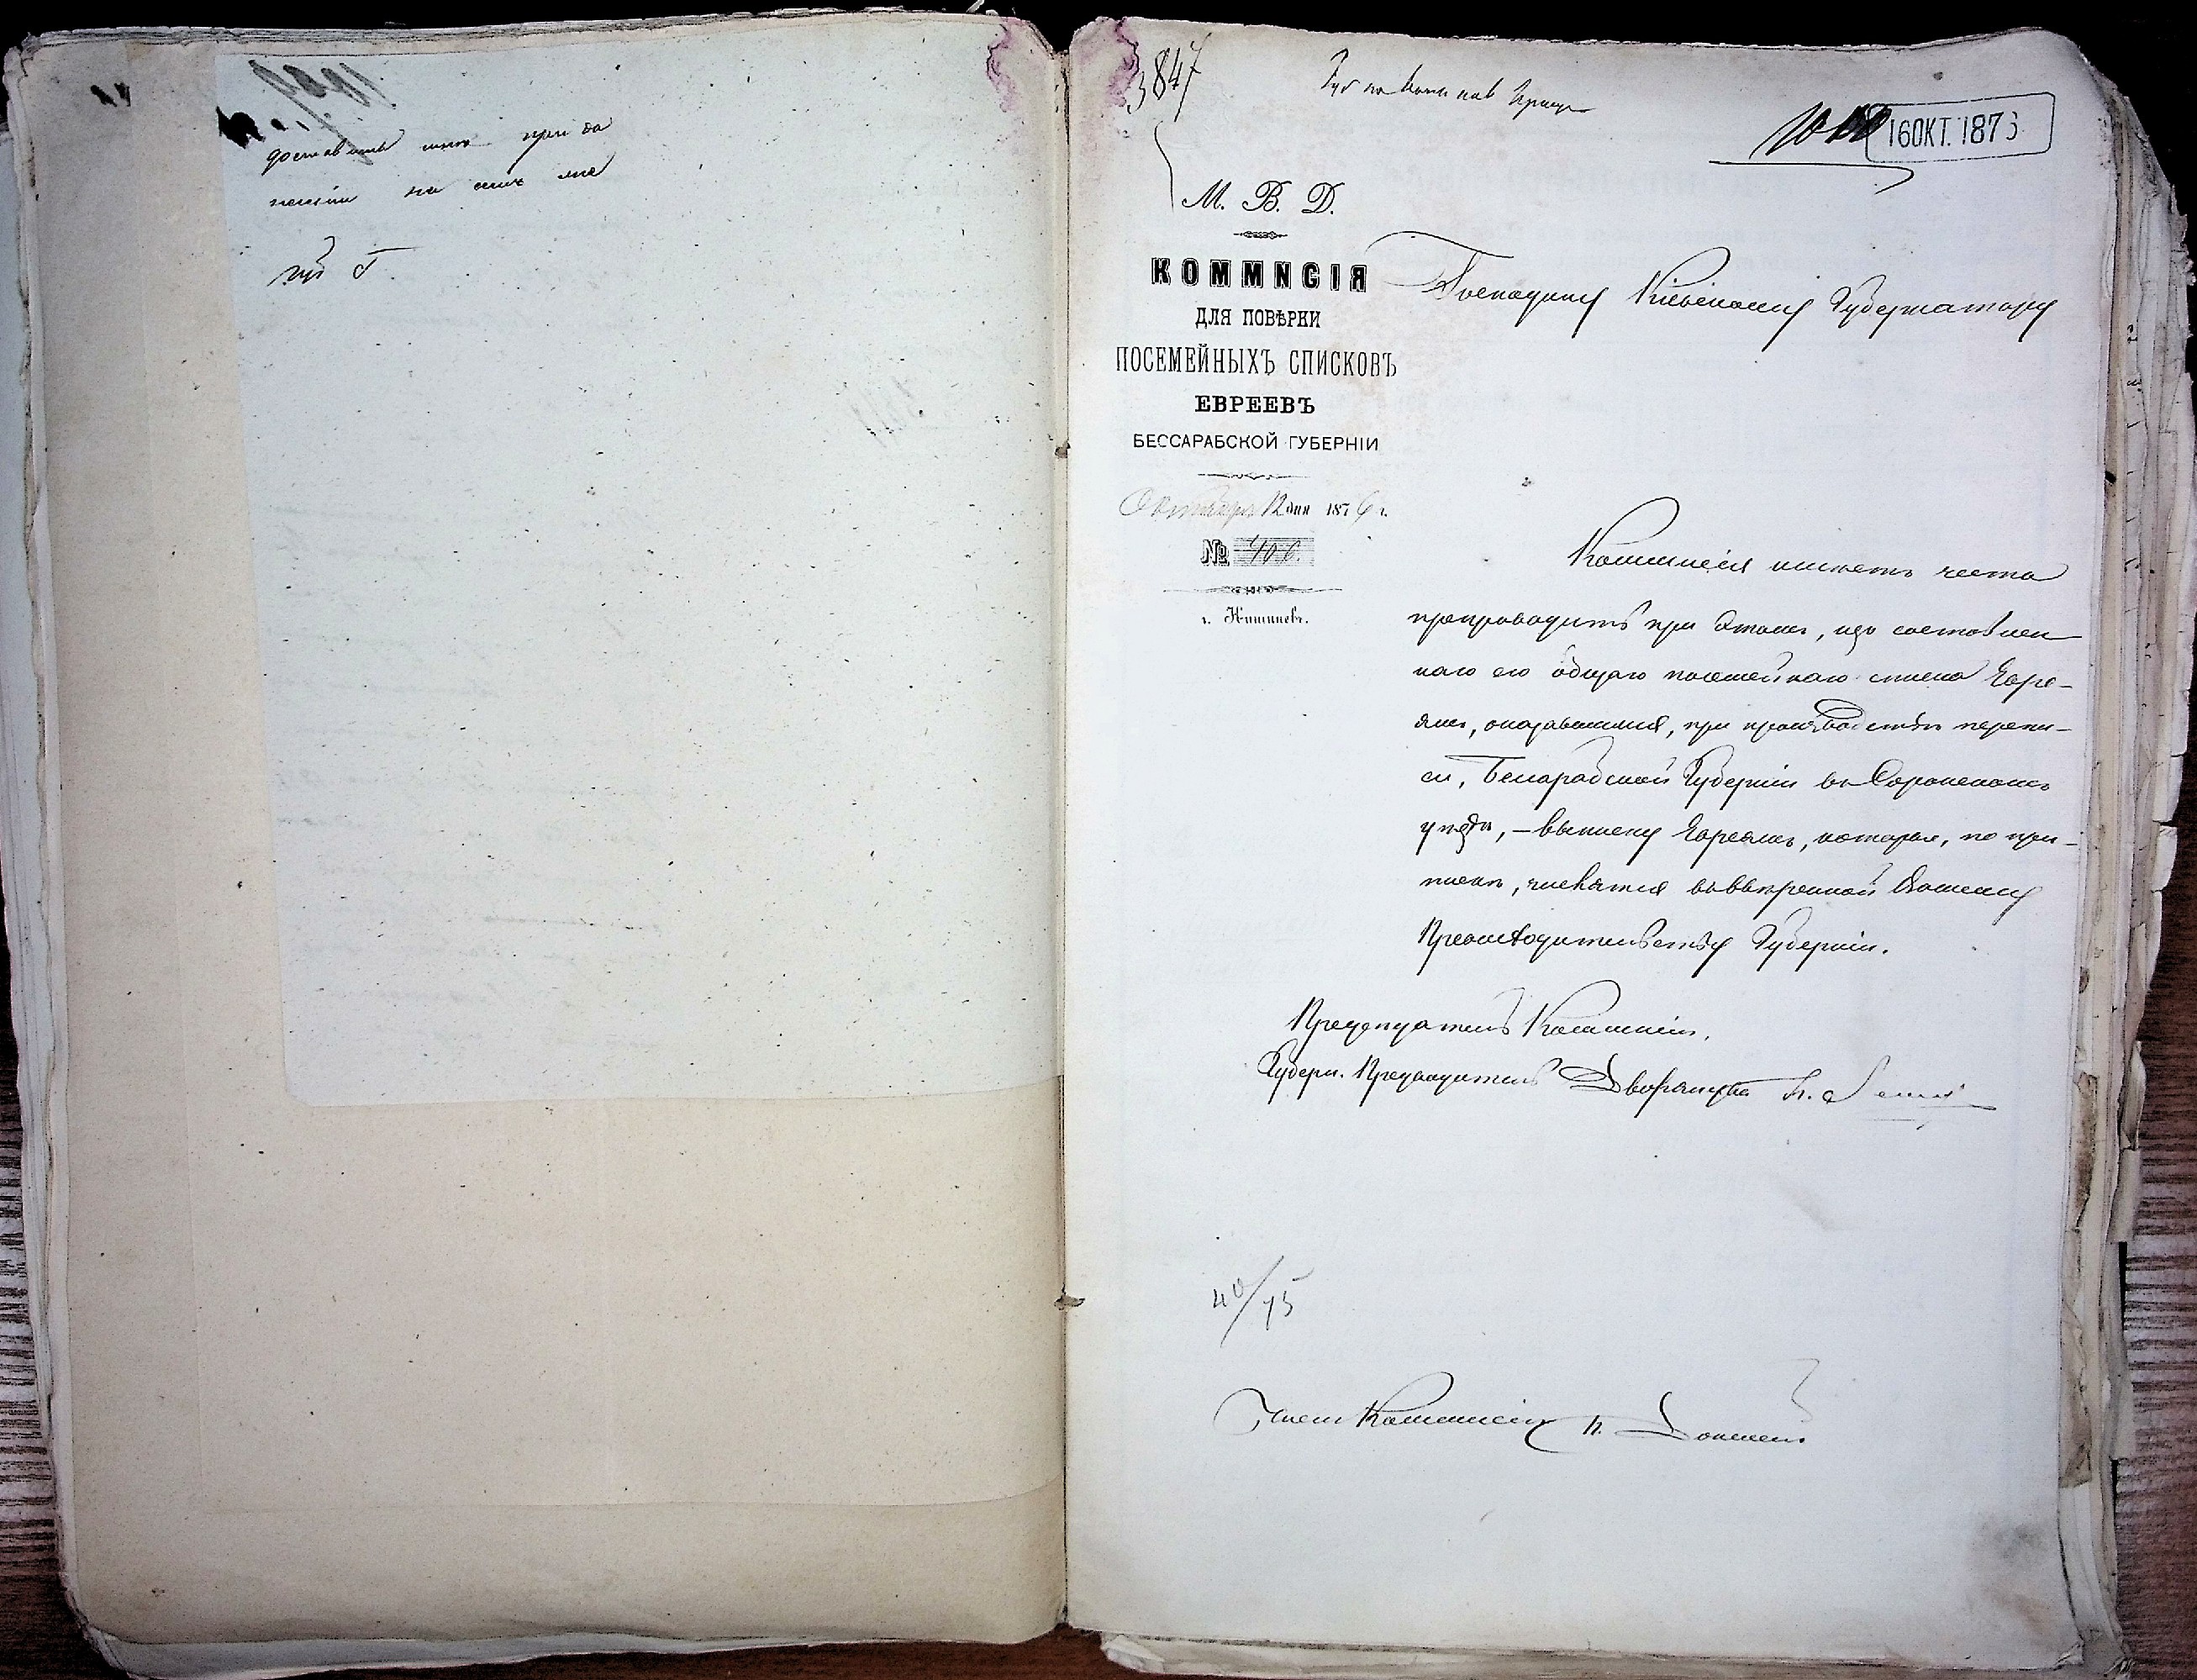 доставить мнѣ при до
несеніи на семъ же
3847
16 ОКТ. 1876
М. В. Д.
КОММИСІЯ
ДЛЯ ПОВѢРКИ
ПОСЕМЕЙНЫХЪ СПИСКОВЪ
ЕВРЕЕВЪ
БЕССАРАБСКОЙ ГУБЕРНІИ
Октября 12 дня 1876 г.
№ 406.
г. Кишиневъ.
Господину Кіевскому Губернатору
Коммисія имѣетъ честь
препроводить при этомъ, изъ составлен
наго ею общаго посемейнаго списка Евре-
ямъ, оказавшимся, при производствѣ перепи-
си, Бессарабской Губерніи въ Сорокскомъ
уѣздѣ, – выписку Евреямъ, которые, по при-
пискѣ, числятся въ ввѣренной Вашему
Превосходительству Губерніи.
Предсѣдатель Коммисіи,
Губерн. Предводитель Дворянства
40/75
Членъ Коммисіи